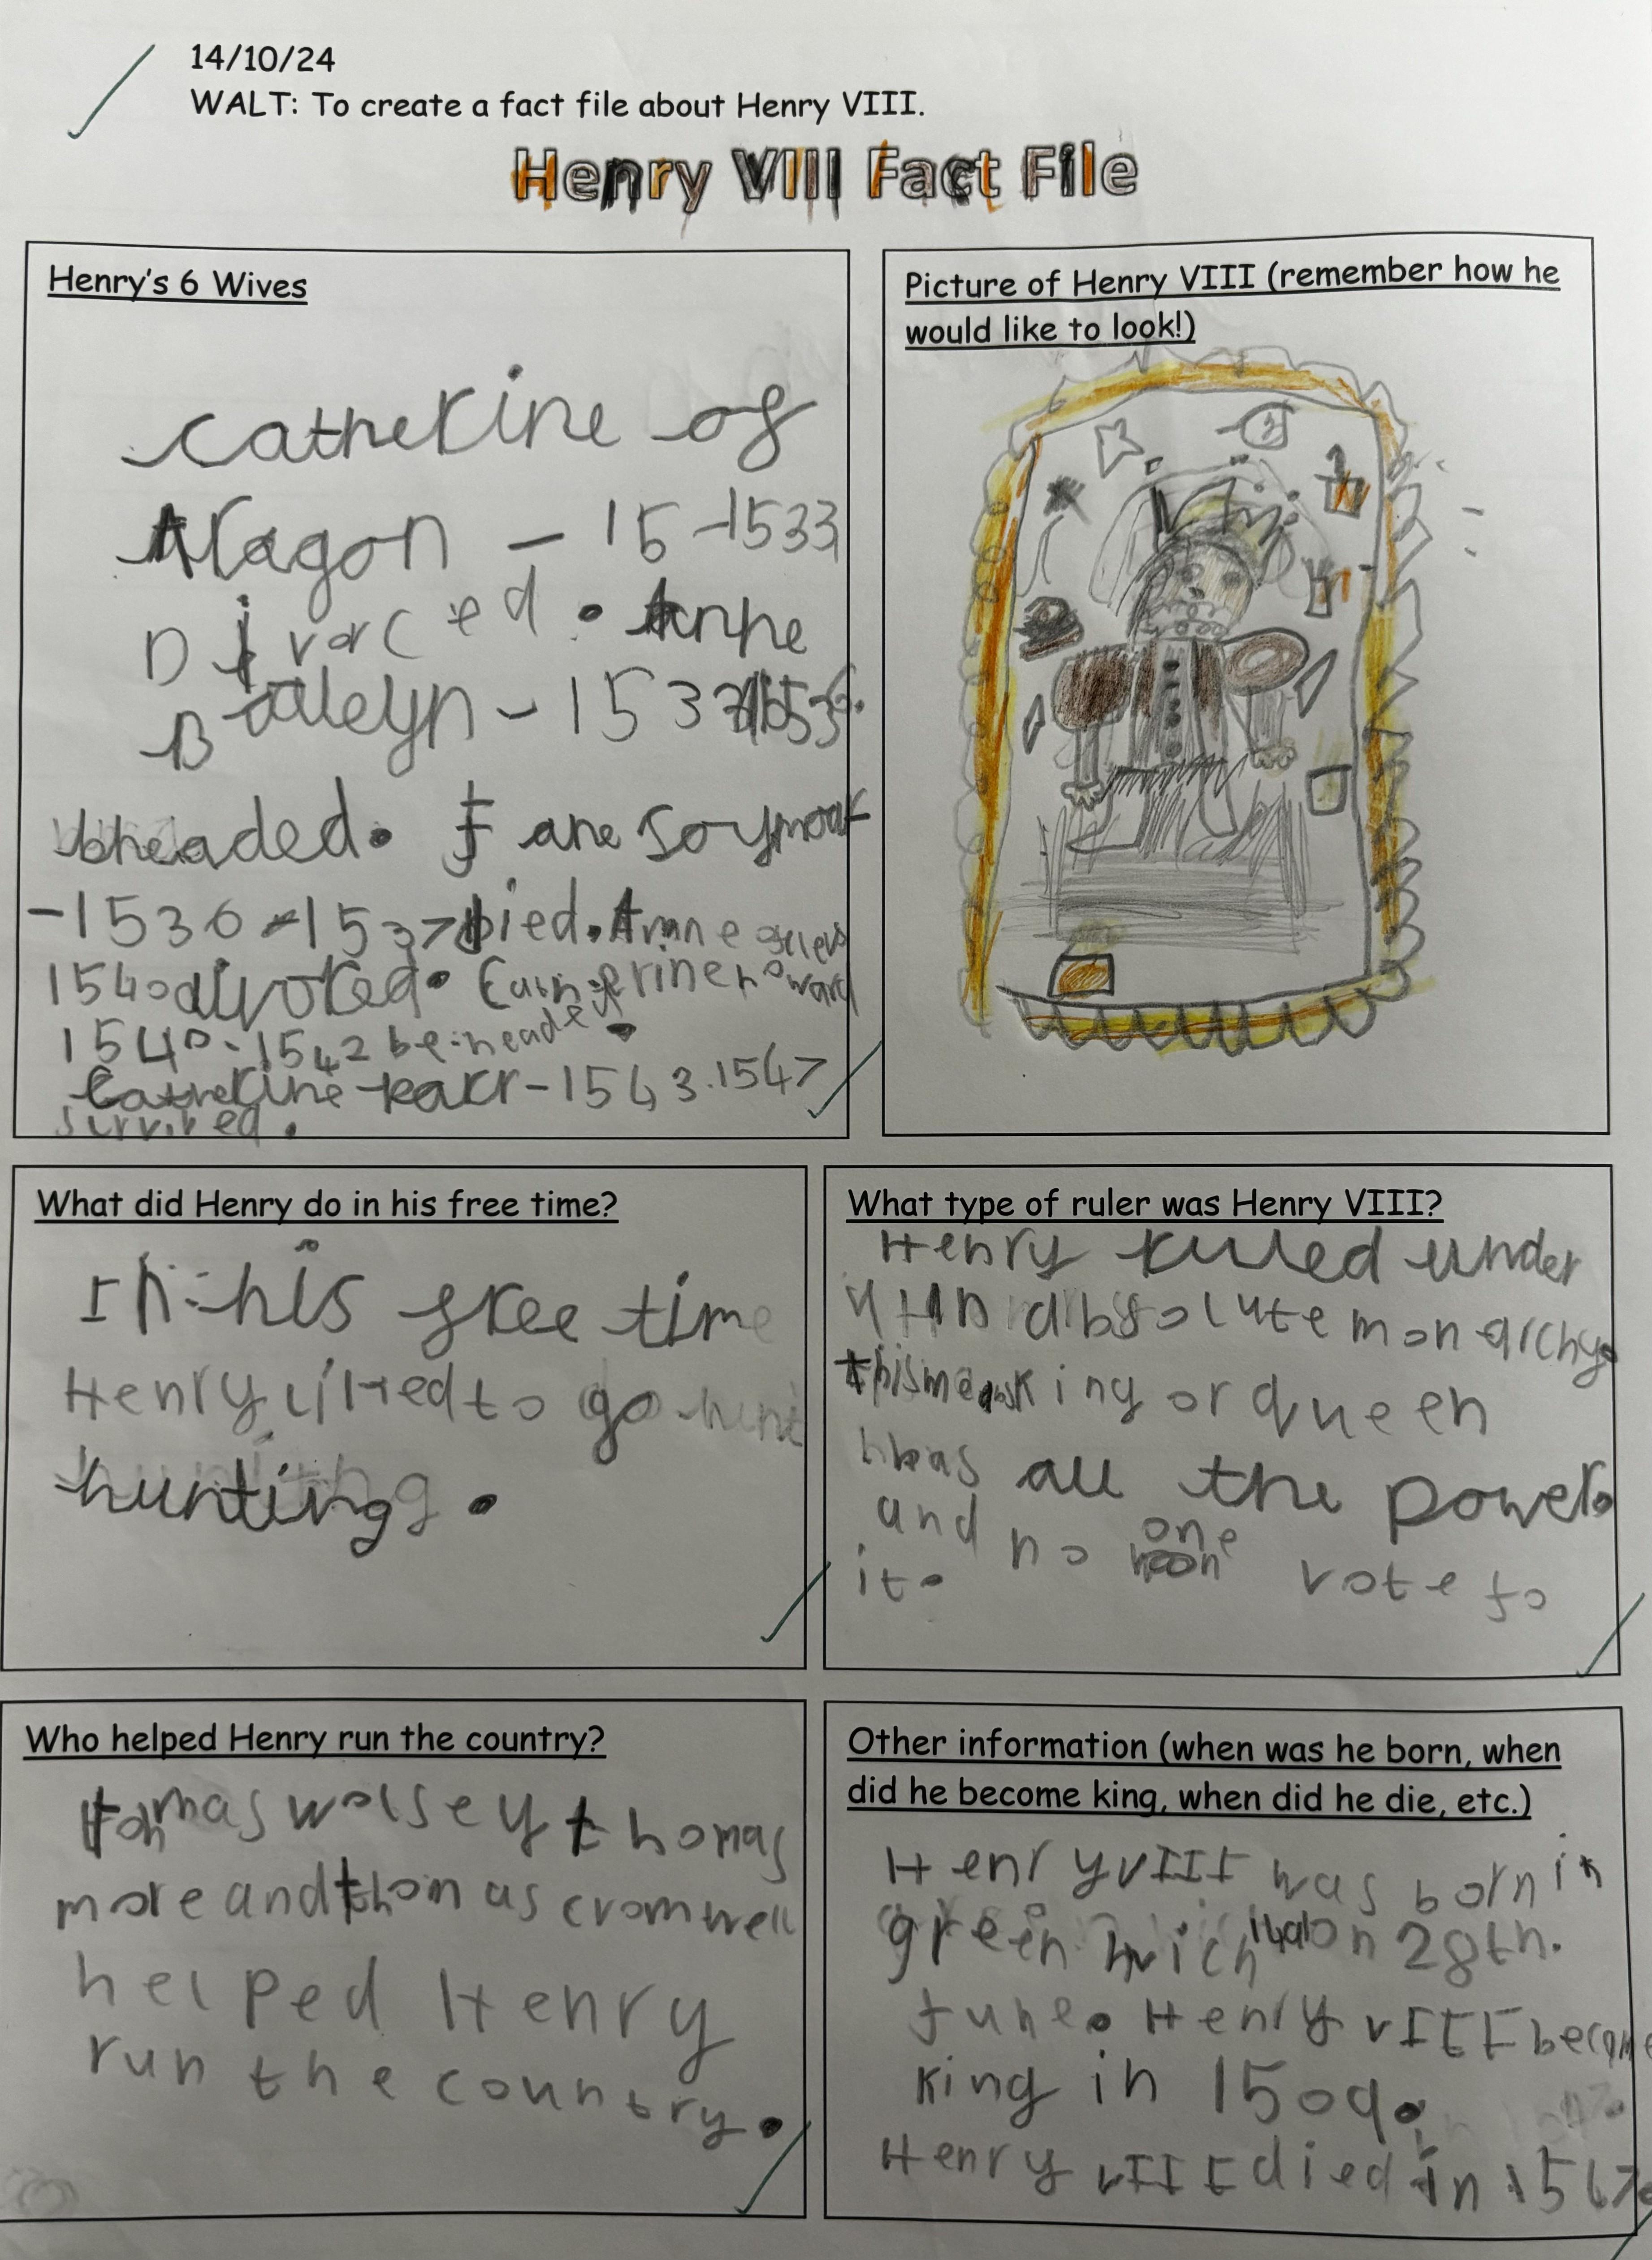 14/10/24
WALT: To create a fact file about Henry VIII.
Henry VIII Fact File
Henry's 6 Wives
Catherine of
Aragon - 15 - 1533
Divorced. Anne
Boaleyn - 1533
bheaded. Jane Soymour
- 1536 - 1537 Died. Anne
1540 divorced. Catherine howard
1540. 1542 be-headed.
Catherine parr - 1543. 1547
survived.
Picture of Henry VIII (remember how he
would like to look!)
What did Henry do in his free time?
In his free time
Henry liked to go hunt
hunting.
What type of ruler was Henry VIII?
Henry ruled under
absolute monarchy.
this means king or queen
has all the power.
and no one vote fo
it.
Who helped Henry run the country?
tomas wolsey thomas
more and thomas cromwell
helped Henry
run the country.
Other information (when was he born, when
did he become king, when did he die, etc.)
Henry VIII was born in
greenwich 1491 on 28th.
June. Henry VIII became
King in 1509.
Henry VIII died in 1547.